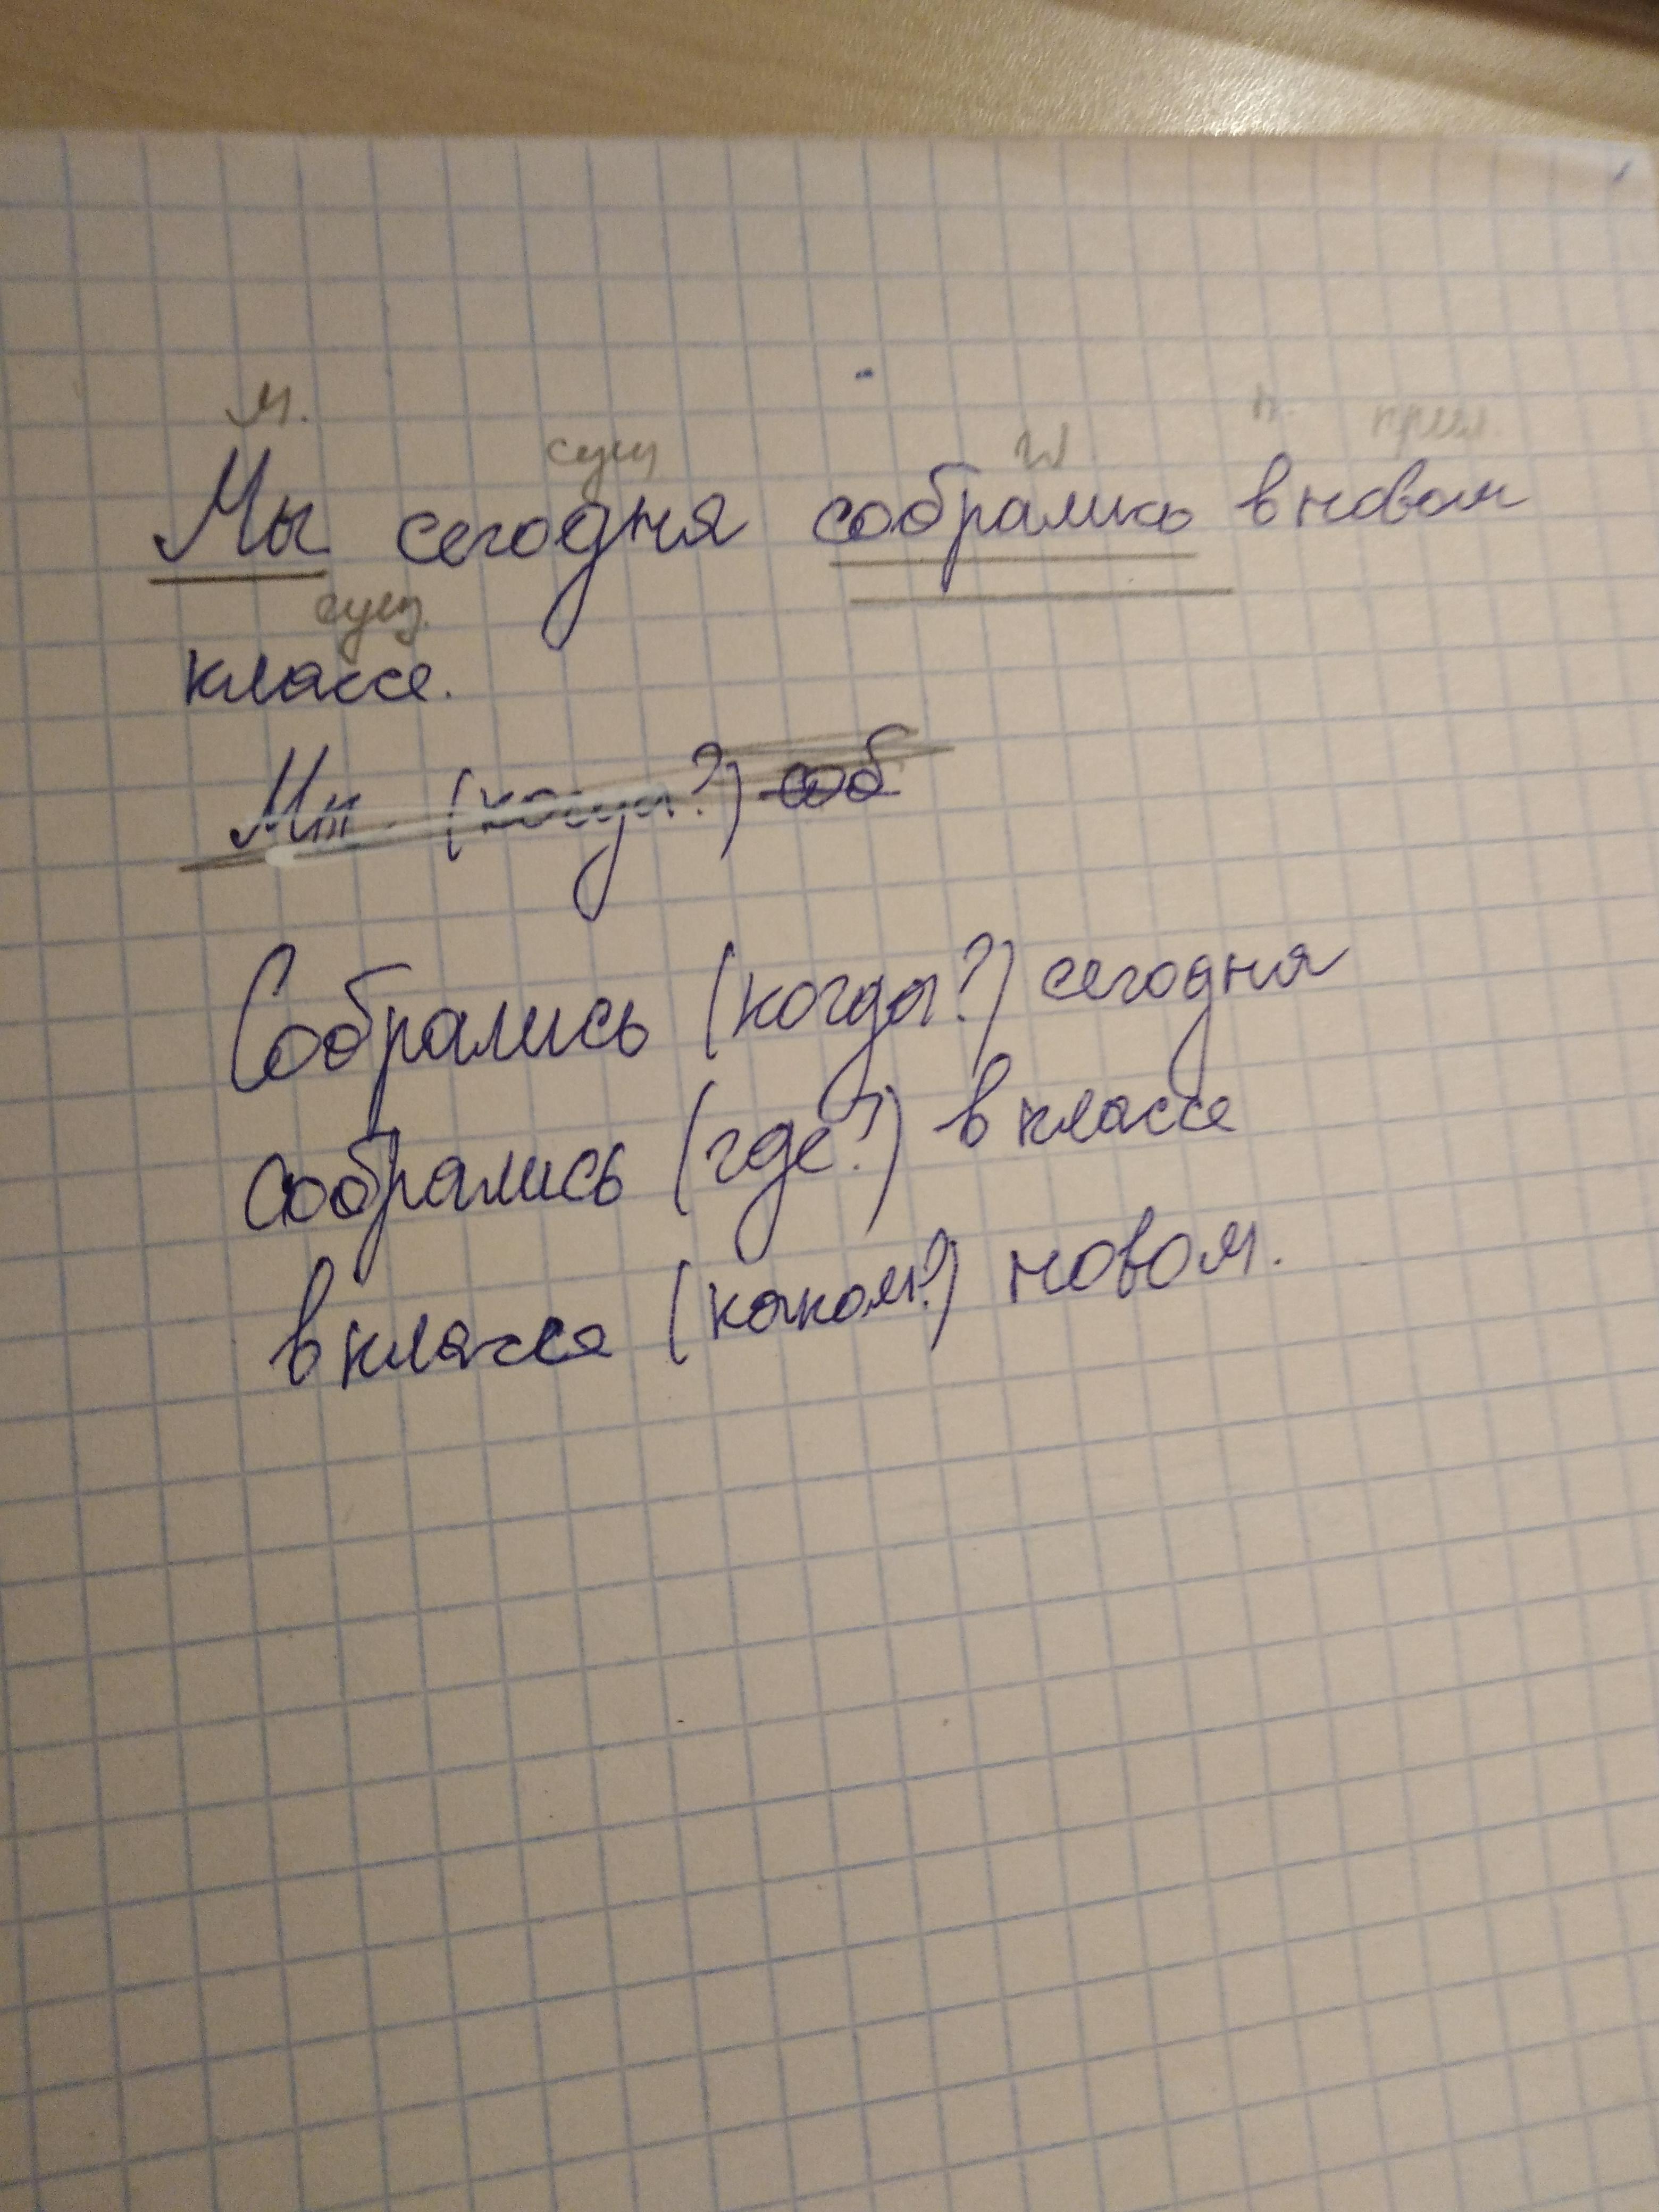 м. сущ г п. прил.
Мы сегодня собрались в новом
сущ.
классе.
(когда?) соб
Собрались (когда?) сегодня
собрались (где?) в классе
в классе (каком?) новом.